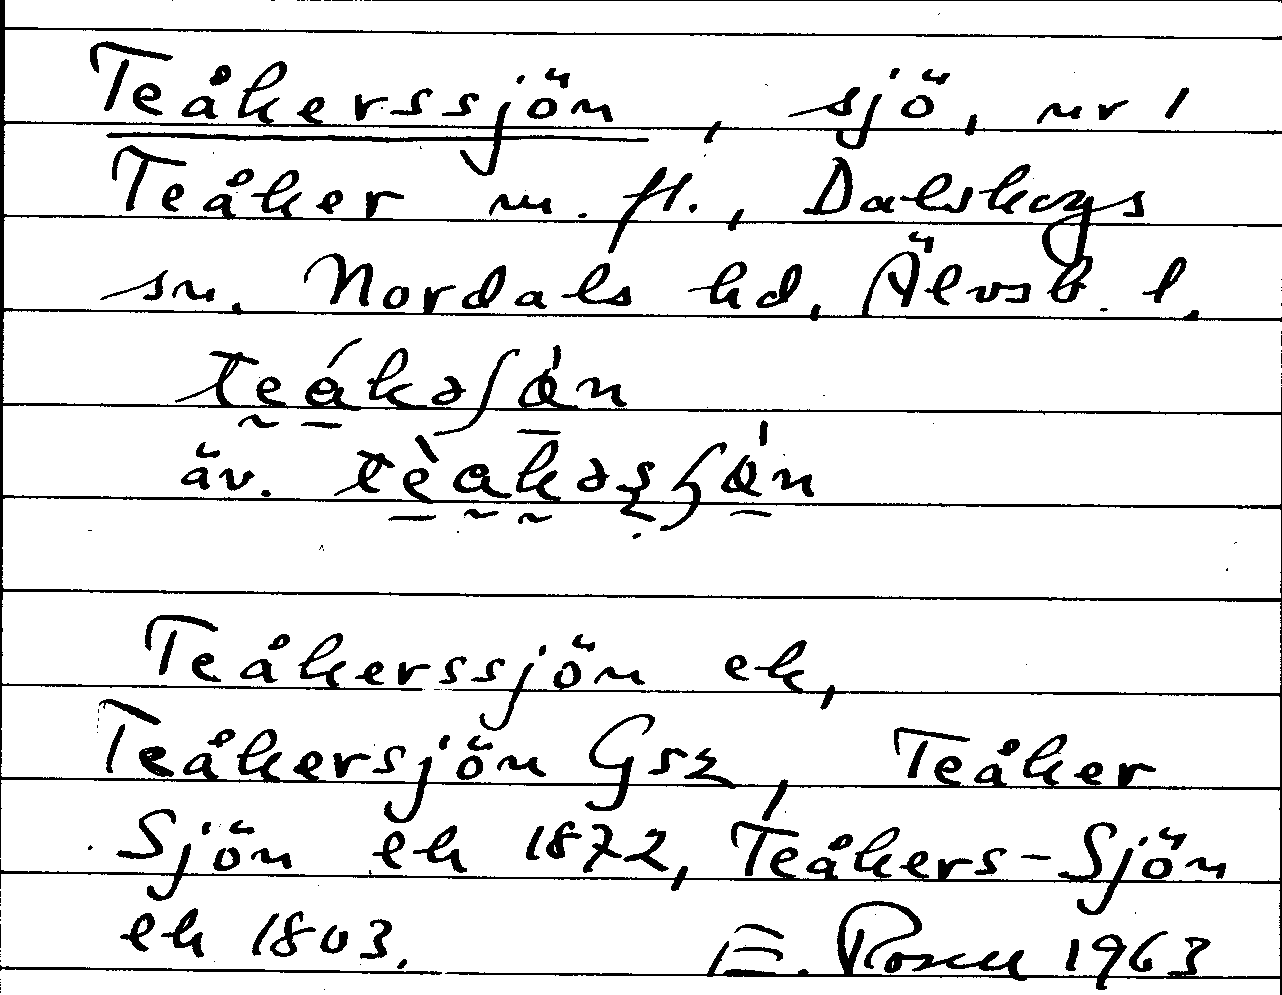 Teåkerssjön, sjö, nr 1
Teåker m. fl., Dalskogs
sn. Nordals hd, Älvsb. l.
teákəʃø̀n
äv. tèakəsʃø̀n
Teåkerssjön ek,
Teåkersjön Gsz, Teåker
Sjön ek 1872, Teåkers-Sjön
ek 1803. E. Rosell 1963